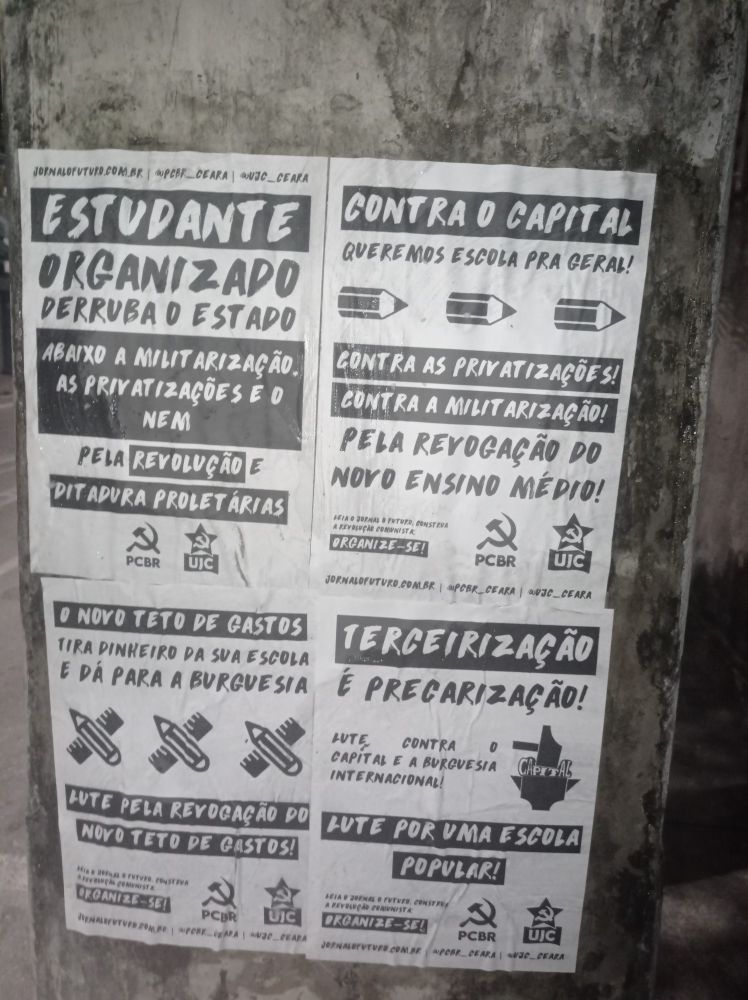 JORNALOFUTURO.COM.BR | @PCBR_CEARA | @UJC_CEARA
ESTUDANTE
ORGANIZADO
DERRUBA O ESTADO
ABAIXO A MILITARIZAÇÃO,
AS PRIVATIZAÇÕES E O
NEM
PELA REVOLUÇÃO E
DITADURA PROLETÁRIAS
PCBR
UJC
CONTRA O CAPITAL
QUEREMOS ESCOLA PRA GERAL!
CONTRA AS PRIVATIZAÇÕES!
CONTRA A MILITARIZAÇÃO!
PELA REVOGAÇÃO DO
NOVO ENSINO MÉDIO!
LEIA O JORNAL O FUTURO, CONSTRUA
A REVOLUÇÃO COMUNISTA.
ORGANIZE-SE!
PCBR
UJC
JORNALOFUTURO.COM.BR | @PCBR_CEARA | @UJC_CEARA
O NOVO TETO DE GASTOS
TIRA DINHEIRO DA SUA ESCOLA
E DÁ PARA A BURGUESIA
LUTE PELA REVOGAÇÃO DO
NOVO TETO DE GASTOS!
LEIA O JORNAL O FUTURO, CONSTRUA
A REVOLUÇÃO COMUNISTA.
ORGANIZE-SE!
PCBR
UJC
JORNALOFUTURO.COM.BR | @PCBR_CEARA | @UJC_CEARA
TERCEIRIZAÇÃO
É PRECARIZAÇÃO!
LUTE CONTRA O
CAPÍTAL E A BURGUESIA
INTERNACIONAL!
CAPITAL
LUTE POR UMA ESCOLA
POPULAR!
LEIA O JORNAL O FUTURO, CONSTRUA
A REVOLUÇÃO COMUNISTA.
ORGANIZE-SE!
PCBR
UJC
JORNALOFUTURO.COM.BR | @PCBR_CEARA | @UJC_CEARA